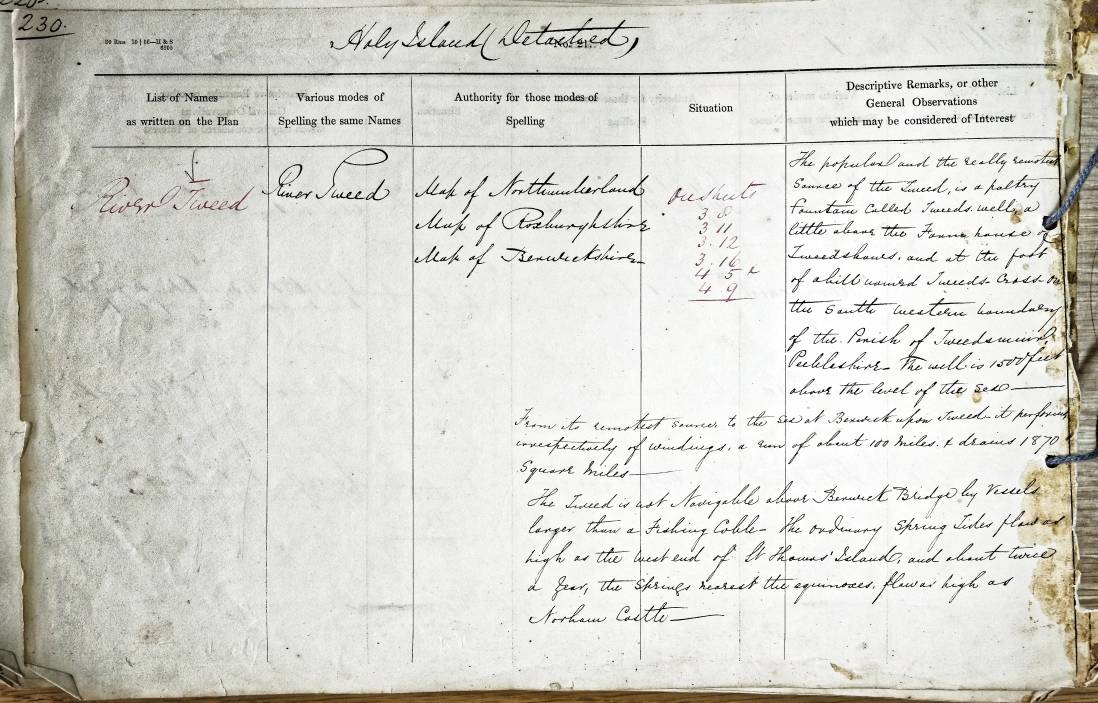 230.
Holy Island (Detached)
No. 21.
List of Names
as written on the Plan
Various modes of
Spelling the same Names
Authority for those modes of
Spelling
Situation
Descriptive Remarks, or other
General Observations
which may be considered of Interest
River Tweed
River Tweed
Map of Northumberland
Map of Roxburghshire
Map of Berwickshire
On Sheets
3 8
3 11
3.12
3.16
4 5 x
4 9
The popular and the really remotest
Source of the Tweed, is a paltry
Fountain Called Tweeds-well, a
little above the Farm house of
Tweedshaws, and at the foot
of a hill named Tweeds-Cross-on
the South western boundary
of the Parish of Tweedsmuir
Peeblesshire - The well is 1500 feet
above the level of the Sea
From its remotest source, to the Sea at Berwick upon Tweed it performs
irrespectively of windings, a run of about 100 Miles, & drains 1870
Square Miles
The Tweed is not Navigable above Berwick Bridge by Vessels
larger than a Fishing Coble - The ordinary Spring Tides flow as
high as the west end of St Thomas' Island, and about twice
a Year, the Springs nearest the equinoxes, flow as high as
Norham Castle